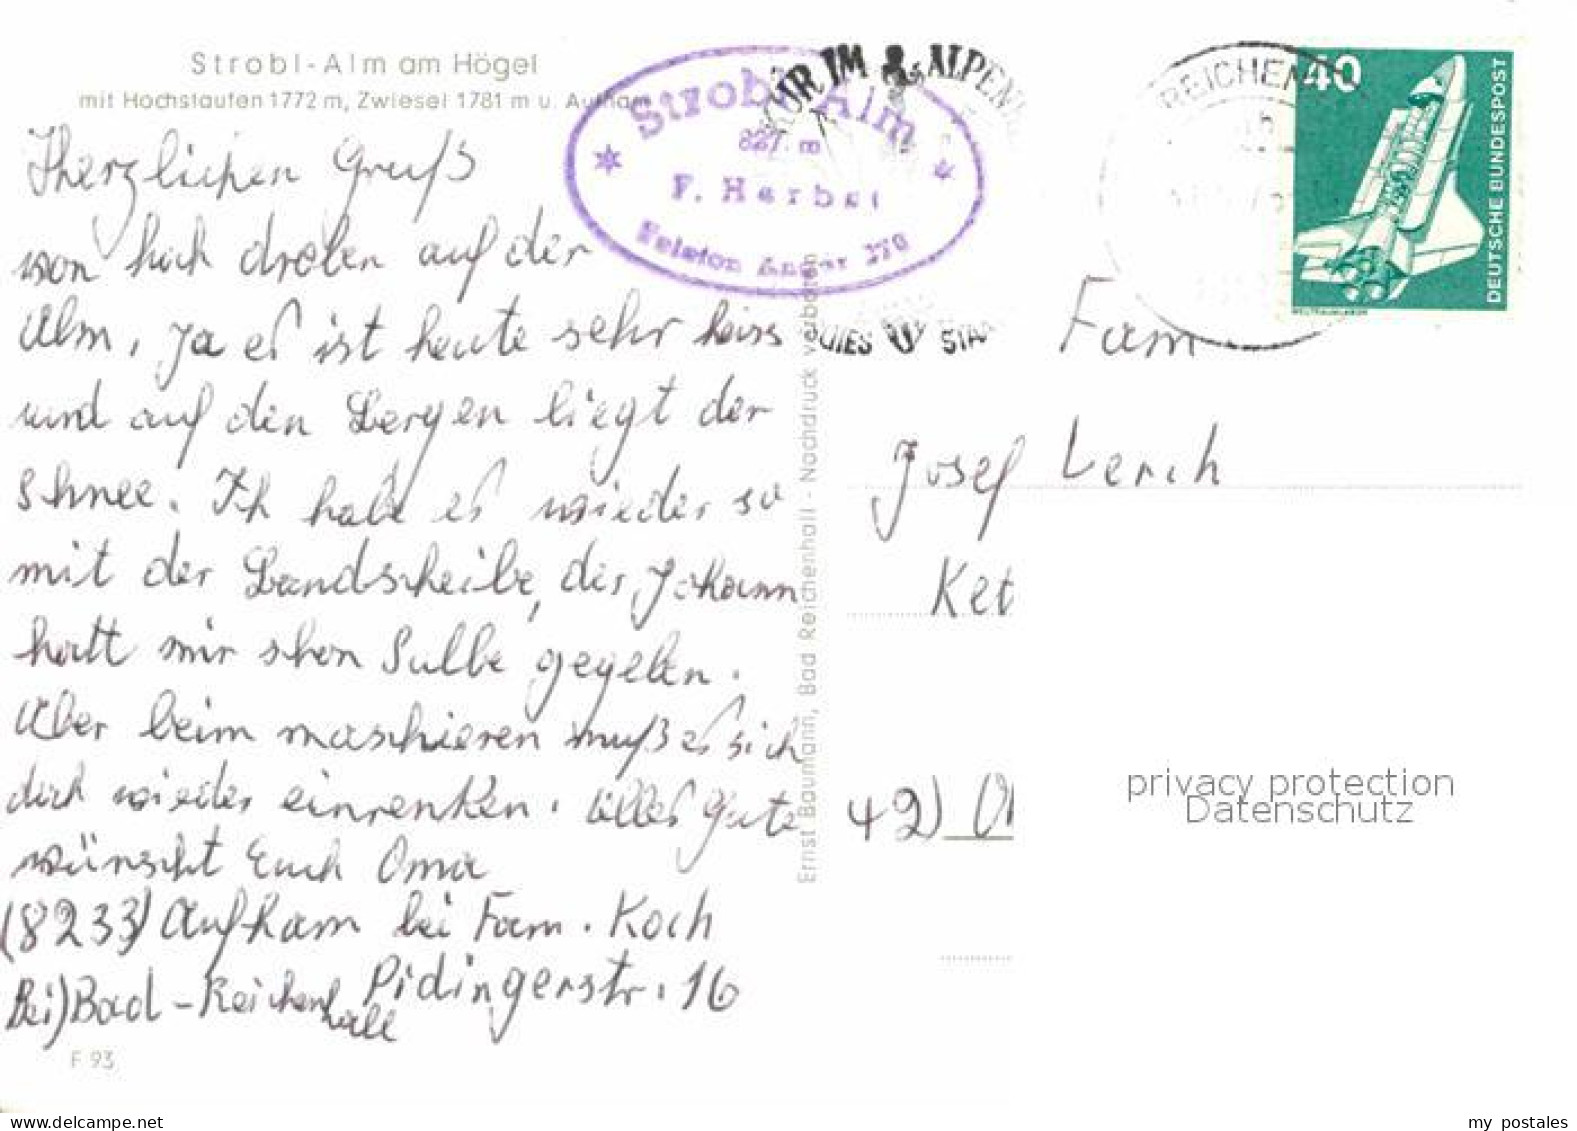 Strobl-Alm am Högel
mit Hochstaufen 1772 m, Zwiesel 1781 m u. Aufham
Herzlichen Gruß
von hoch droben auf der
Alm, Ja es ist heute sehr heiss
und auf den Bergen liegt der
Schnee. Ich habe es wieder so
mit der Bandscheibe, der Johann
hatt mir schon Salbe gegeben.
Aber beim maschieren muß es sich
dich wieder einrenken. Alles Gute
wünscht Euch Oma
(8233) Aufham bei Fam. Koch
Bei) Bad-Reichenhall
Pidingerstr. 16
F 93
Strobl Alm
F. Herbst
Telefon Anger 270
KUR IM ALPEN
REICHEN
40
DEUTSCHE BUNDESPOST
Ernst Baumann, Bad Reichenhall - Nachdruck verboten
Fam
Josef Lerch
Ket
42)
privacy protection
Datenschutz
www.delcampe.net
my postales